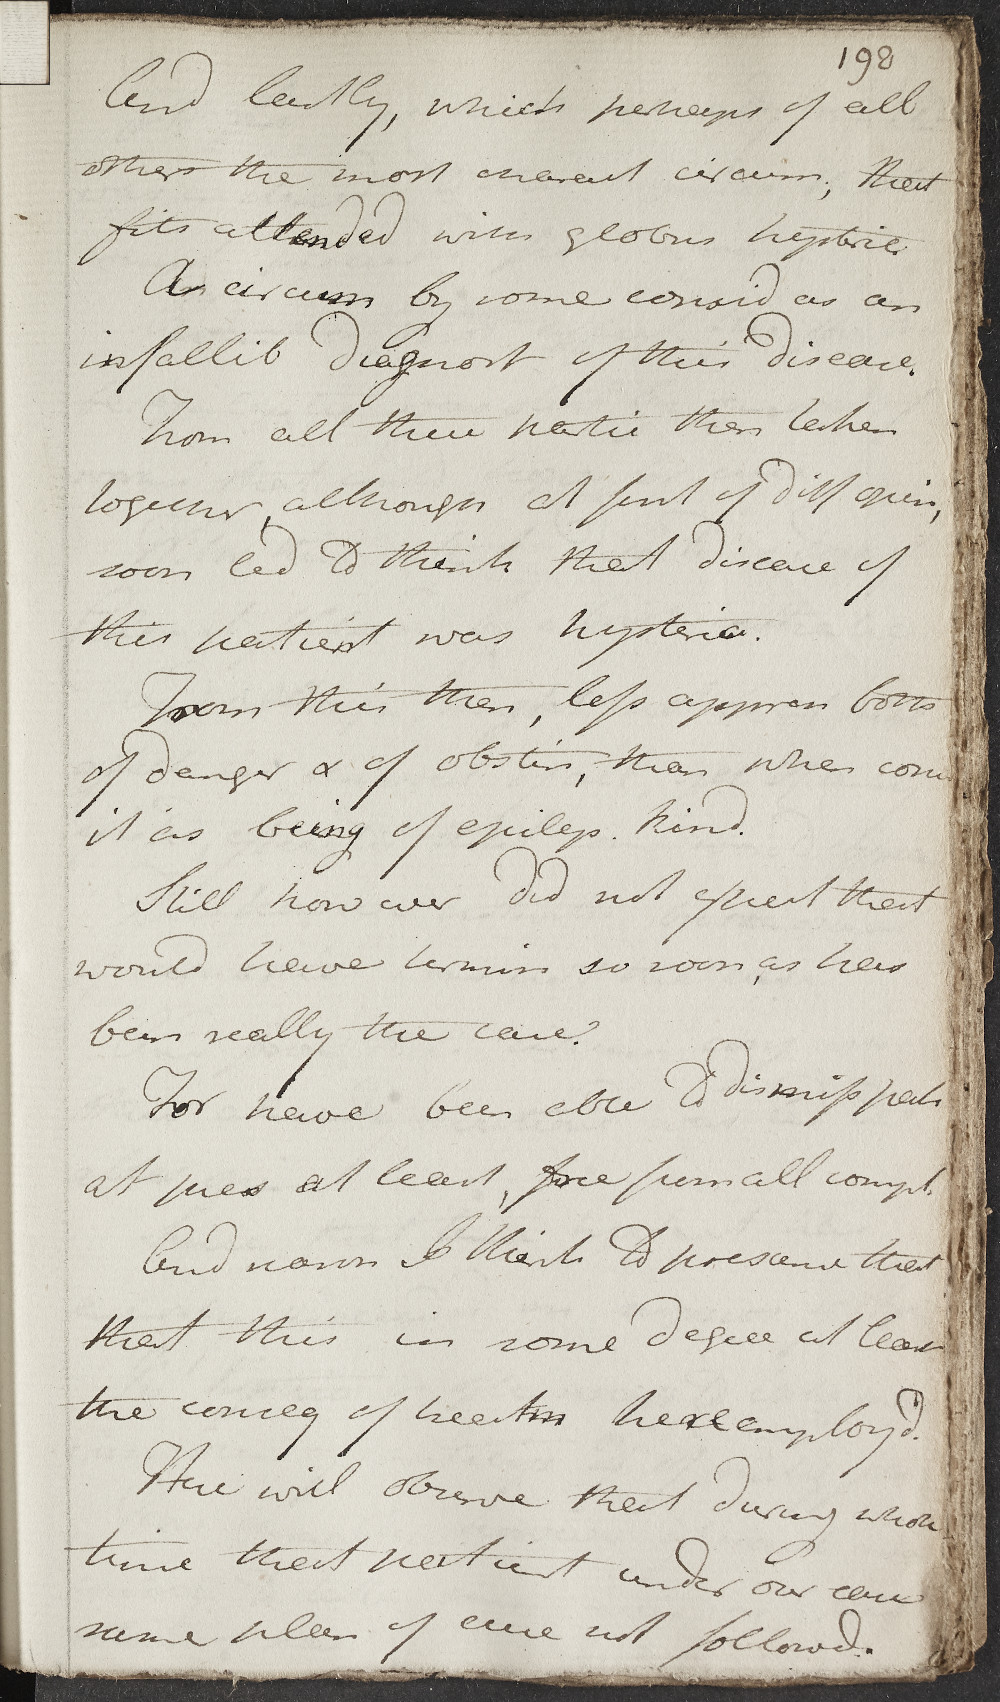 198
And lastly, which perhaps of all
others the most charact circum, that
fits attended with globus hysteric
A circum by some consid as an
infallib Diagnost of this Disease.
From all these partic then taken
together, although at first of diff opin,
soon led to think that disease of
this patient was hysteria.
From this then, less appren both
of danger & of obstin, than when cons
it as being of epilep. kind.
Still however did not expect that
would have termin so soon, as has
been really the case.
For have been able to dismiss pat
at pres at least, free from all compt.
And now I think to presume that
that this in some degree at least
the conseq of treatm here employ'd.
Here will observe that during whole
time that patient under our care
same plan of cure not followd.